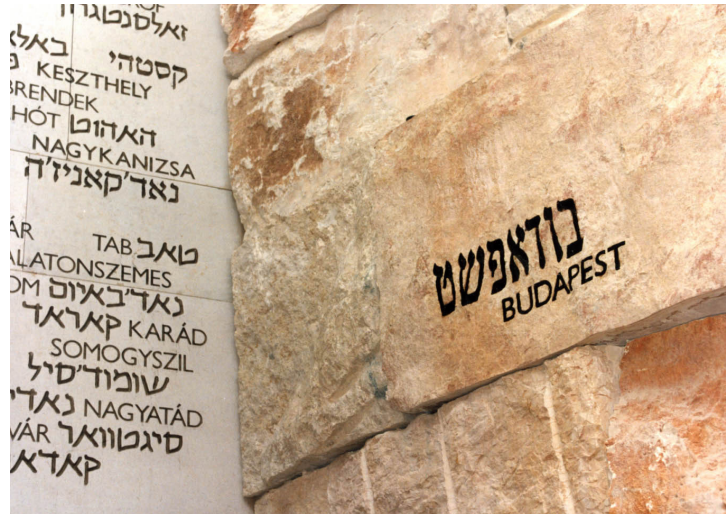 זאלסנטגרוט
קסטהי
KESZTHELY
BRENDEK
האהוט
NAGYKANIZSA
נאד'קאניז'ה
TAB טאב
נאד'באיום
קאראד KARÁD
SOMOGYSZIL
שומוד'סיל
NAGYATÁD
סיגטוואר
בודאפשט
BUDAPEST